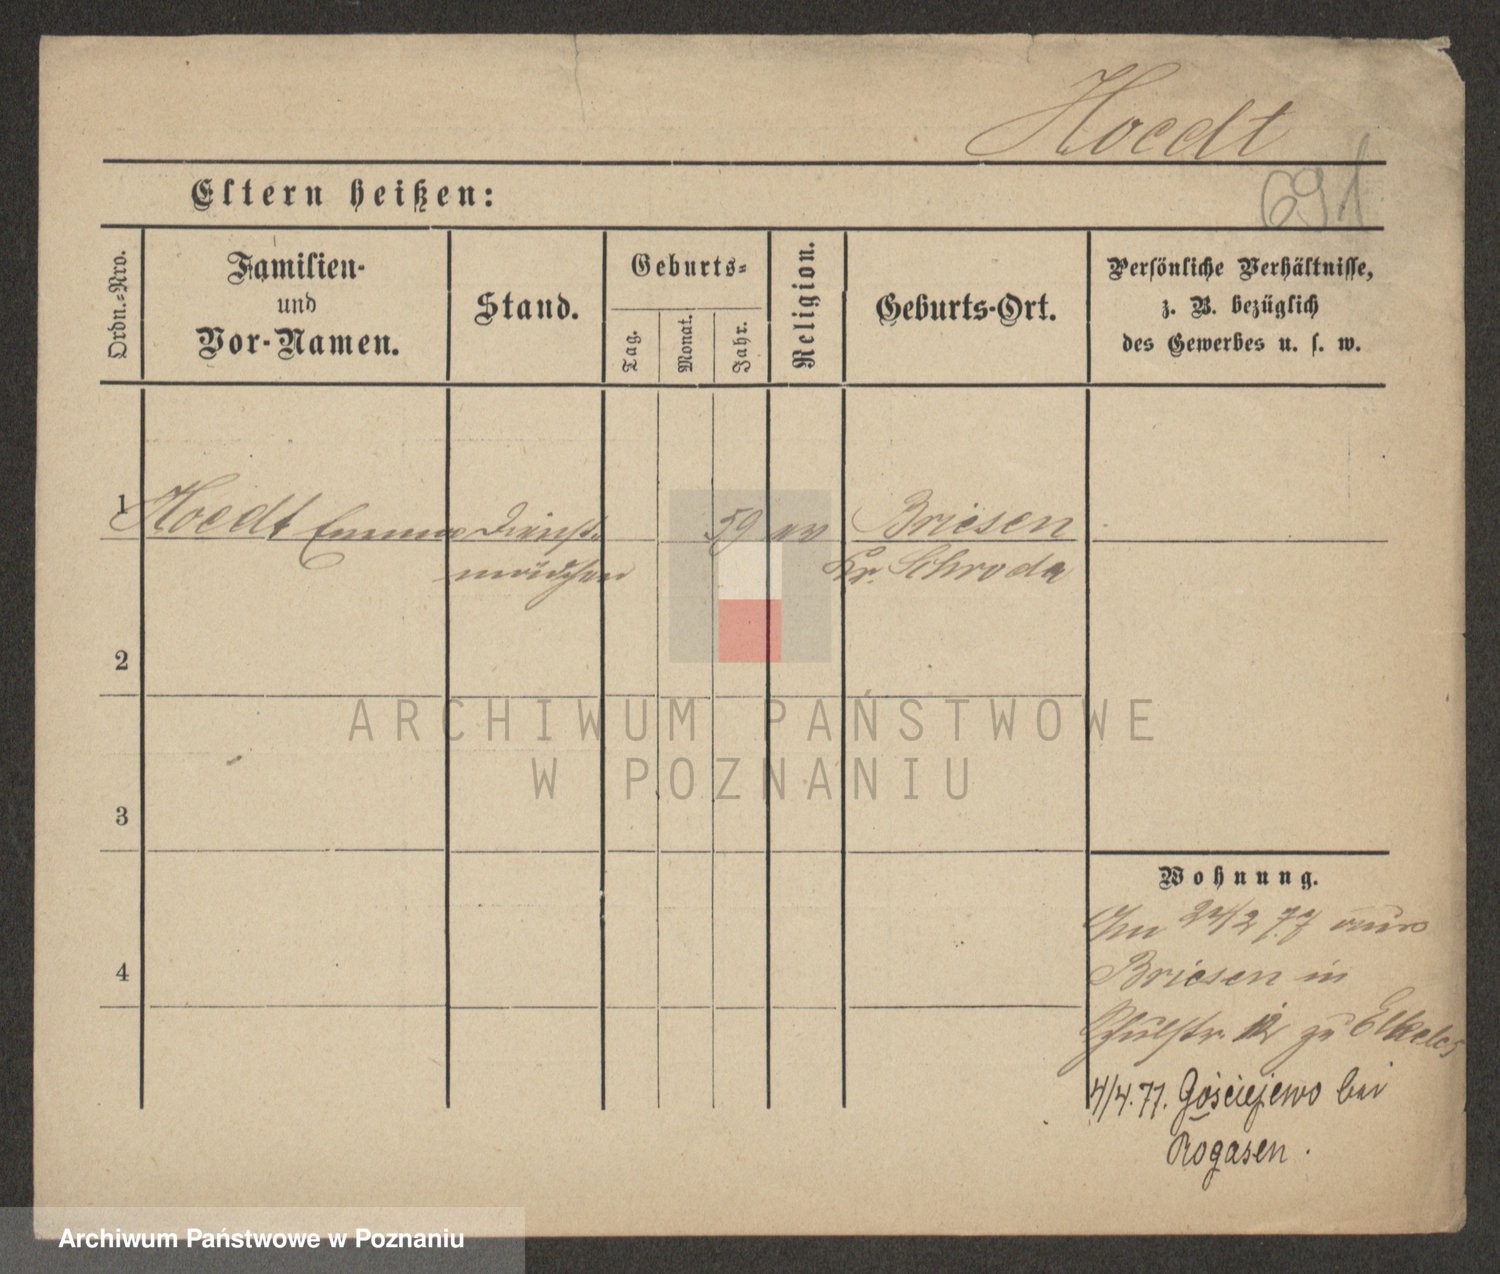 Hoedt
691
Eltern heißen:
Ordn.-Nro.
Familien-
und
Vor-Namen.
Stand.
Geburts-
Tag.
Monat.
Jahr.
Religion.
Geburts-Ort.
Persönliche Verhältnisse,
z. B. bezüglich
des Gewerbes u. s. w.
1 Hoedt Emma Dienst- 59 ev Briesen
mädchen Kr. Schroda
2
ARCHIWUM PAŃSTWOWE
W POZNANIU
3
Wohnung.
/2 77 aus
4
Briesen in
Schulstr. 12 zu Elkeles
4/4.77. Gościejewo bei
Rogasen.
Archiwum Państwowe w Poznaniu